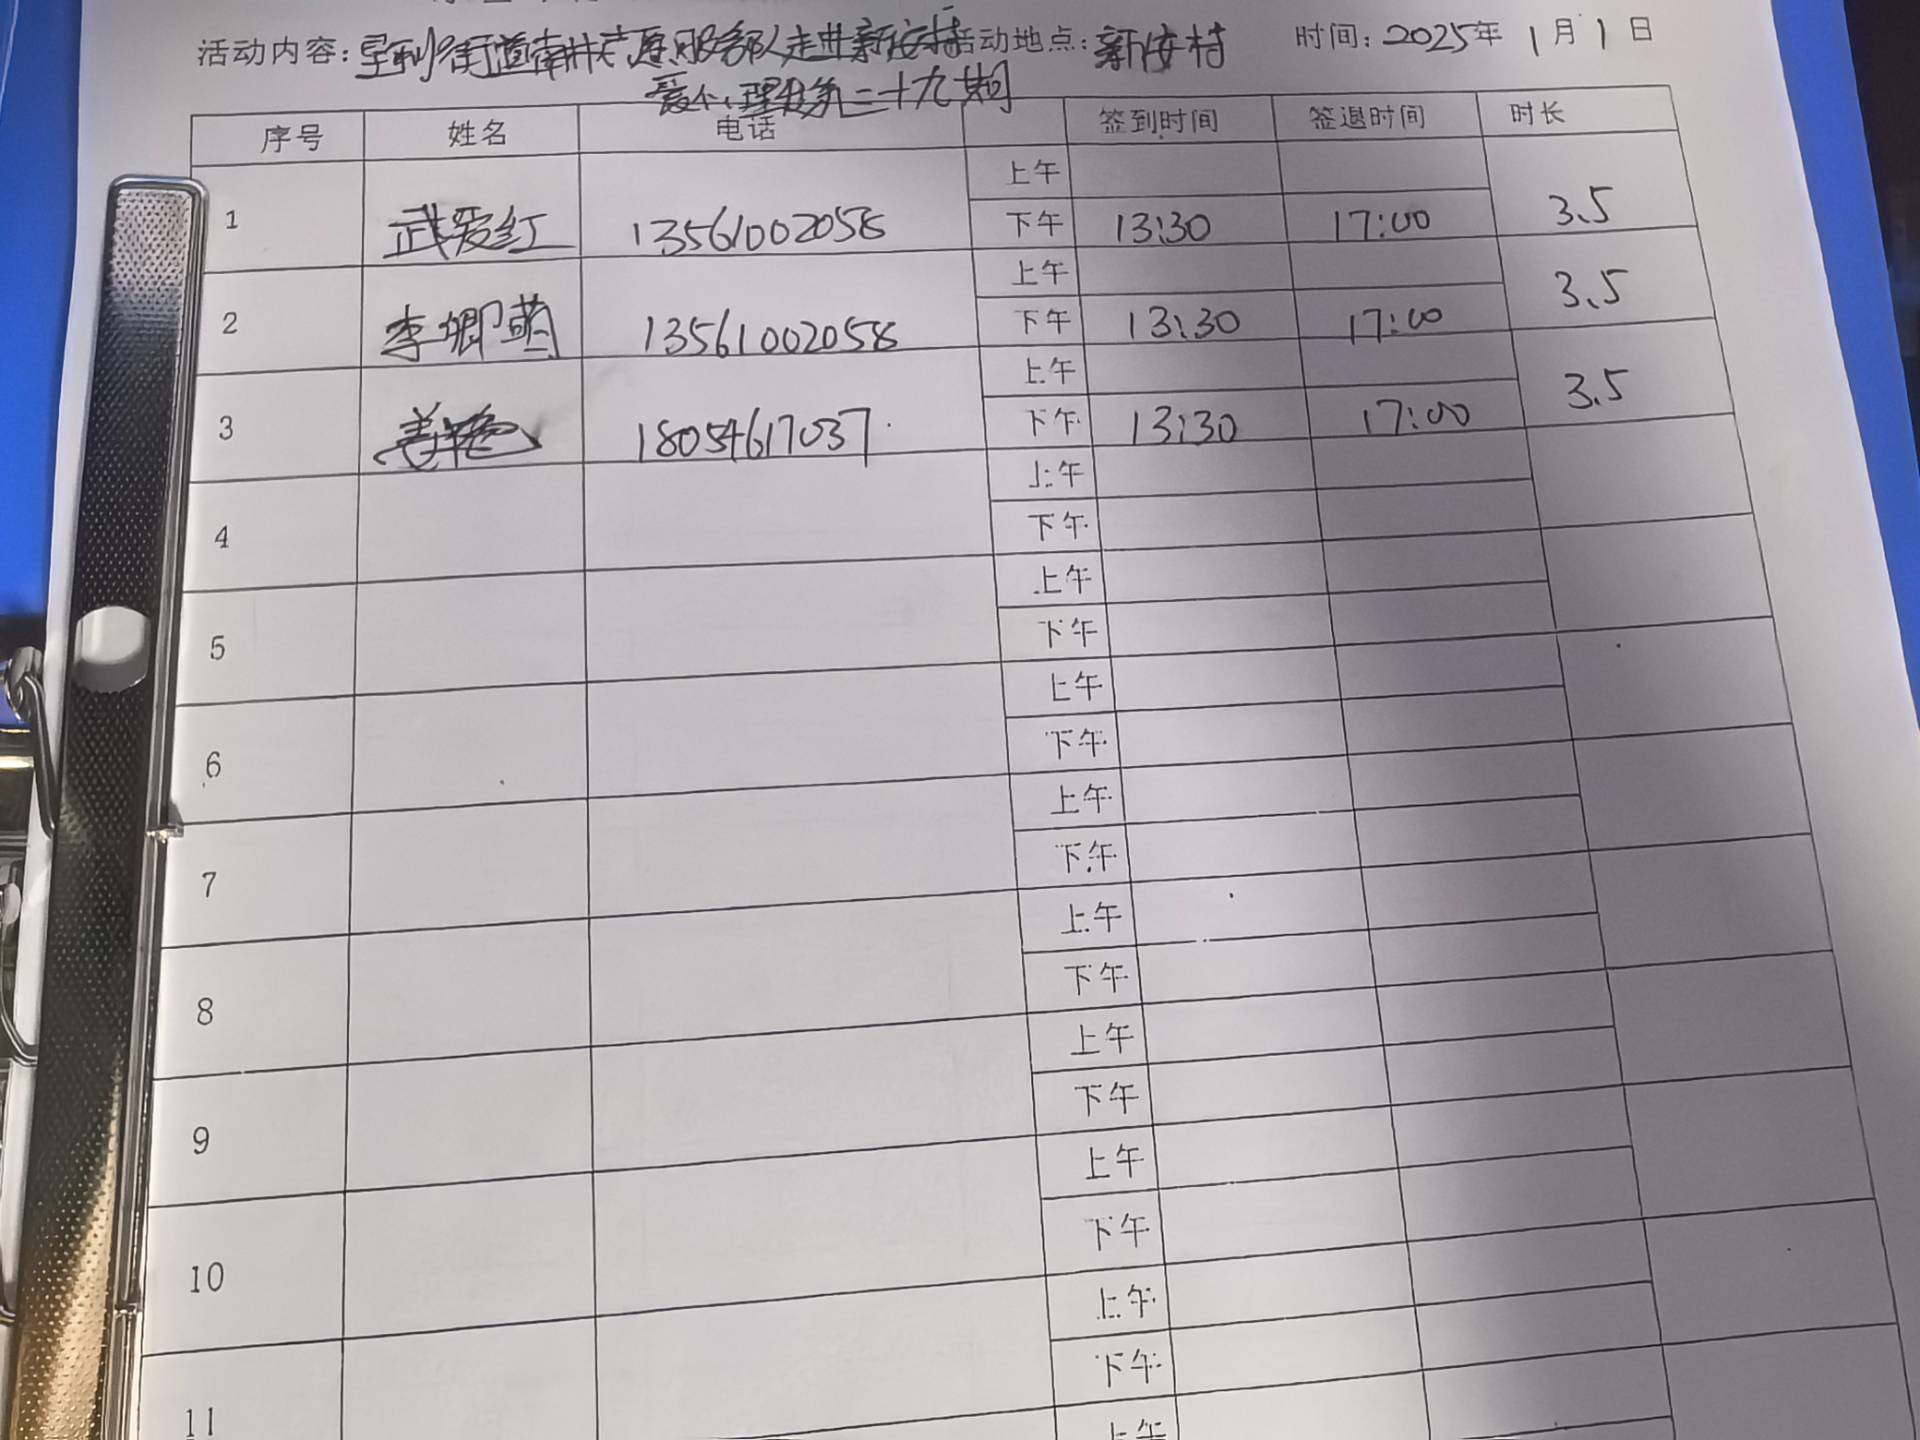 活动内容：垦利街道南林志愿服务队走进新安村 活动地点：新安村 时间：2025年1月1日
爱心理发第二十九期
序号 姓名 电话 签到时间 签退时间 时长
1 武爱红 13561002058 上午
下午 13:30 17:00 3.5
2 李卿萌 13561002058 上午
下午 13:30 17:00 3.5
3 姜艳 18054617037 上午
下午 13:30 17:00 3.5
4 上午
下午
5 上午
下午
6 上午
下午
7 上午
下午
8 上午
下午
9 上午
下午
10 上午
下午
11 上午
下午
上午